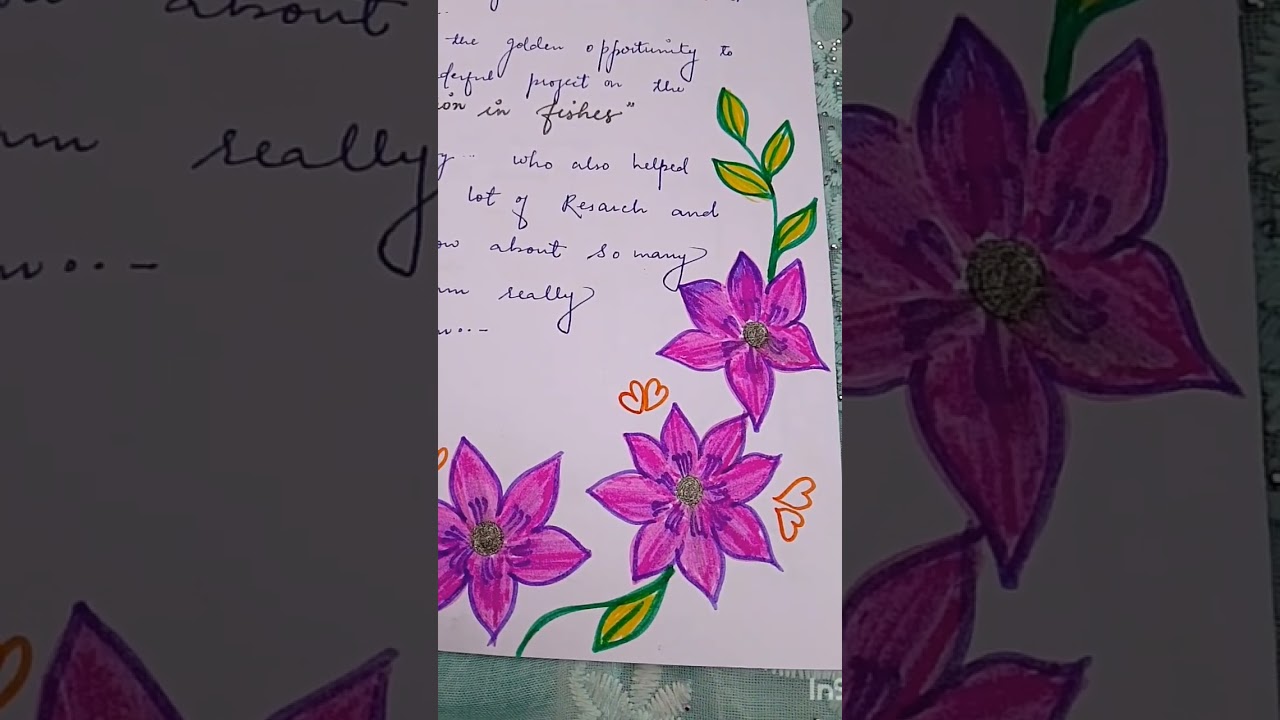 the golden opportunity to
project on the
in fishes"
who also helped
lot of Resarch and
about so many
really
about
really
InS